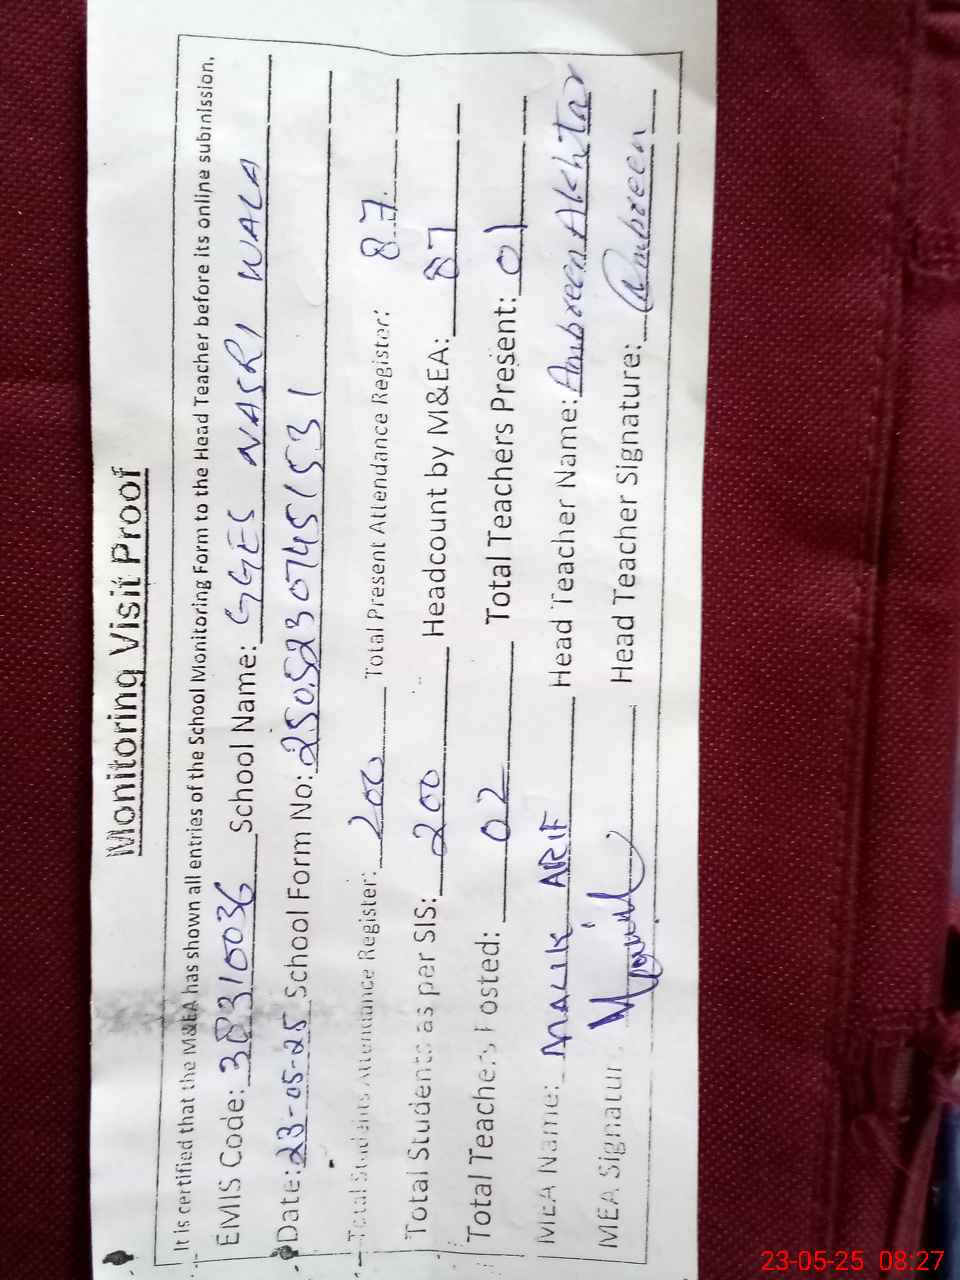 Monitoring Visit Proof
It is certified that the M&EA has shown all entries of the School Monitoring Form to the Head Teacher before its online submission.
EMIS Code: 38310036 School Name: GGES NASRI WALA
Date: 23-05-25 School Form No: 250523074515531
Total Students Attendance Register: 200 Total Present Attendance Register: 87
Total Students as per SIS: 200 Headcount by M&EA: 87
Total Teachers Posted: 02 Total Teachers Present: 01
MEA Name: MALIK ARIF Head Teacher Name: Ambreen Akhtar
MEA Signature Head Teacher Signature: Ambreen
23-05-25 08:27